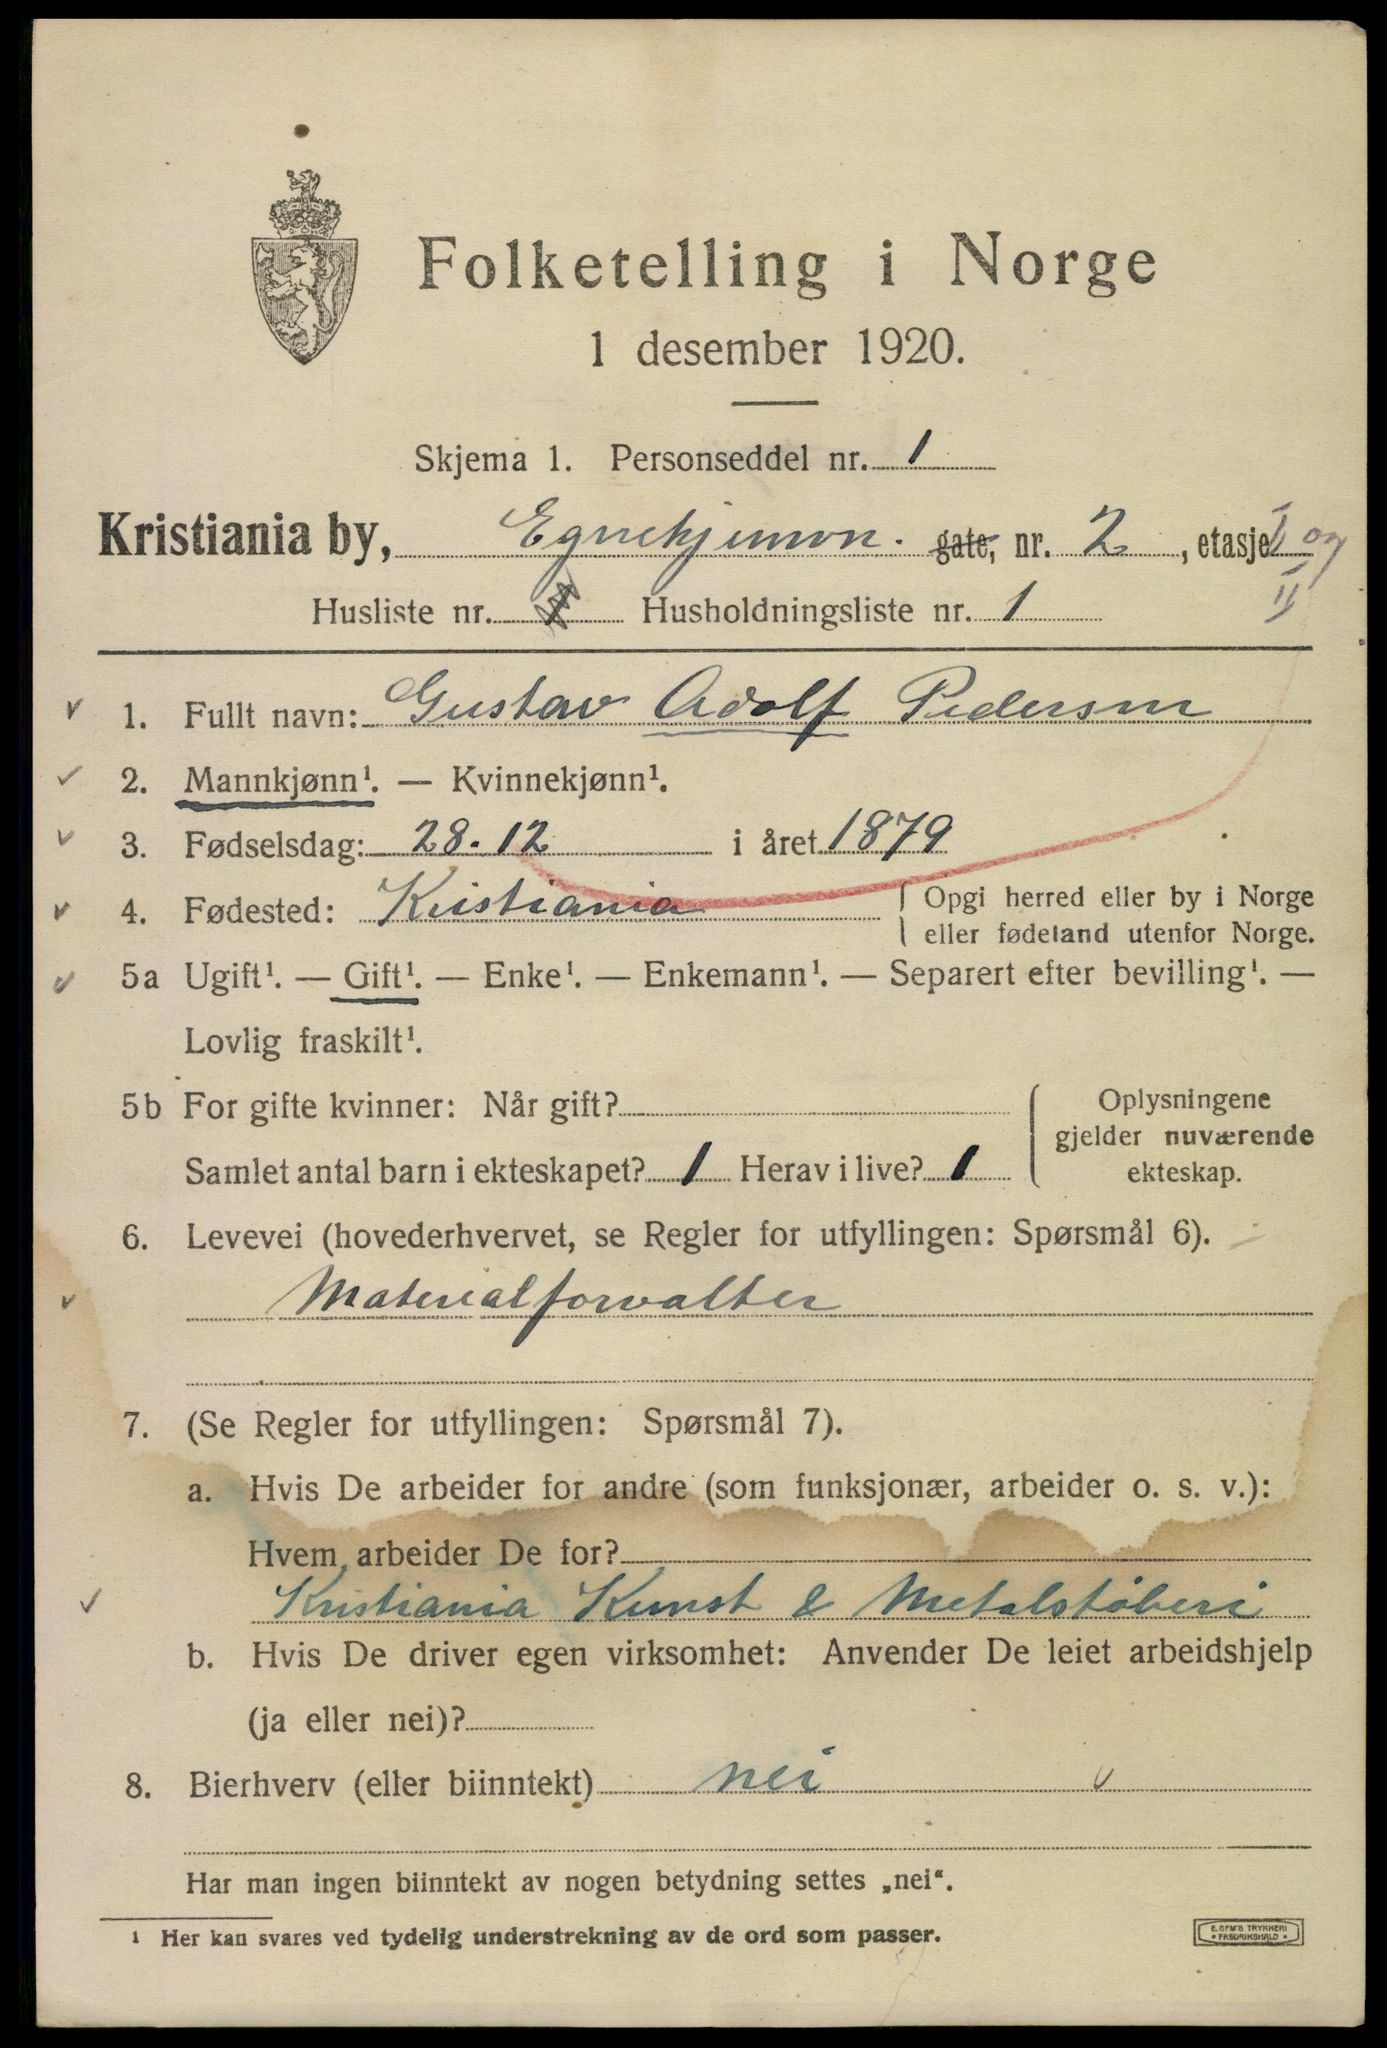 Folketelling i Norge
1 desember 1920.
Skjema 1. Personseddel nr. 1
Kristiania by, Egnehjemvn. gate, nr. 2, etasje I og
II
Husliste nr. Husholdningsliste nr. 1
1. Fullt navn: Gustav Adolf Pedersen
2. Mannkjønn¹. — Kvinnekjønn¹.
3. Fødselsdag: 28.12 i året 1879
4. Fødested: Kristiania { Opgi herred eller by i Norge
eller fødeland utenfor Norge.
5a Ugift¹. — Gift¹. — Enke¹. — Enkemann¹. — Separert efter bevilling¹. —
Lovlig fraskilt¹.
5b For gifte kvinner: Når gift? { Oplysningene
gjelder nuværende
Samlet antal barn i ekteskapet? 1 Herav i live? 1 ekteskap.
6. Levevei (hovederhvervet, se Regler for utfyllingen: Spørsmål 6).
Materialforvalter
7. (Se Regler for utfyllingen: Spørsmål 7).
a. Hvis De arbeider for andre (som funksjonær, arbeider o. s. v.):
Hvem arbeider De for?
Kristiania Kunst & Metalstøberi
b. Hvis De driver egen virksomhet: Anvender De leiet arbeidshjelp
(ja eller nei)?
8. Bierhverv (eller biinntekt) nei
Har man ingen biinntekt av nogen betydning settes „nei“.
¹ Her kan svares ved tydelig understrekning av de ord som passer.
E. SEM'S TRYKKERI
* FREDRIKSHALD *